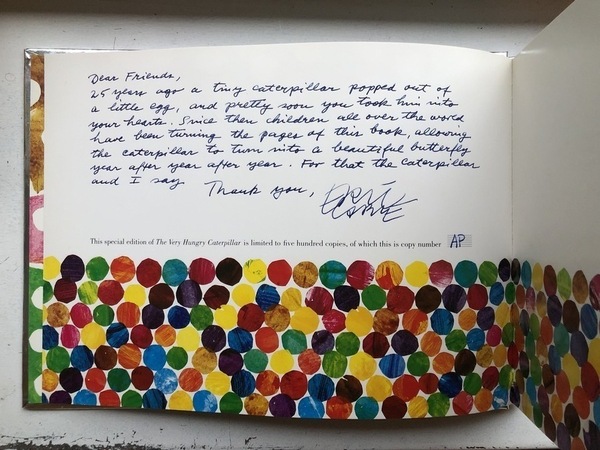 Dear Friends,
25 years ago a tiny caterpillar popped out of
a little egg, and pretty soon you took him into
your hearts. Since then children all over the world
have been turning the pages of this book, allowing
the caterpillar to turn into a beautiful butterfly
year after year after year. For that the caterpillar
and I say Thank you, Eric Carle
This special edition of The Very Hungry Caterpillar is limited to five hundred copies, of which this is copy number AP